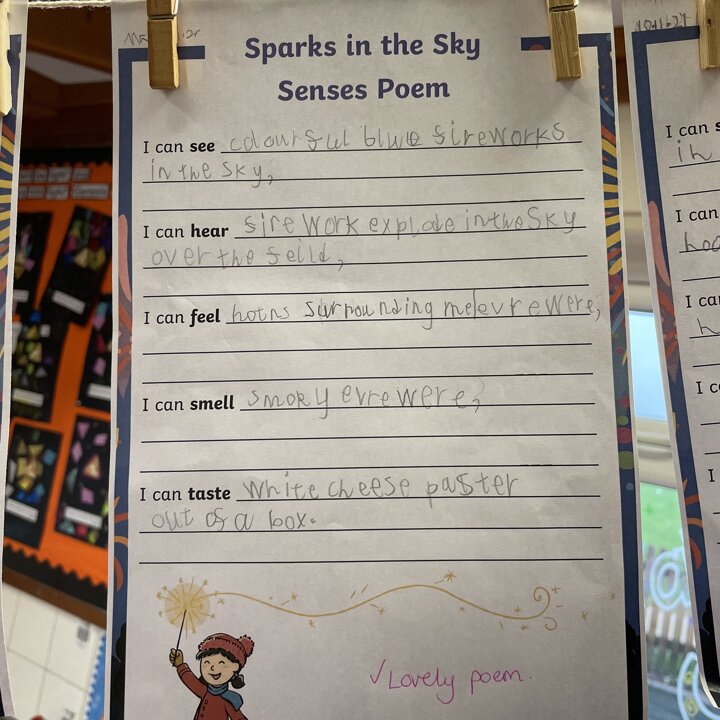 Sparks in the Sky
Senses Poem
I can see colourful blue fireworks
in the sky,
I can hear firework explode in the Sky
over the feild,
I can feel hotns surrounding me evrewere,
I can smell smoky evrewere,
I can taste white cheese paster
out of a box.
✓ Lovely poem.
I can
ih
I can
hoo
I can
h
I c
I